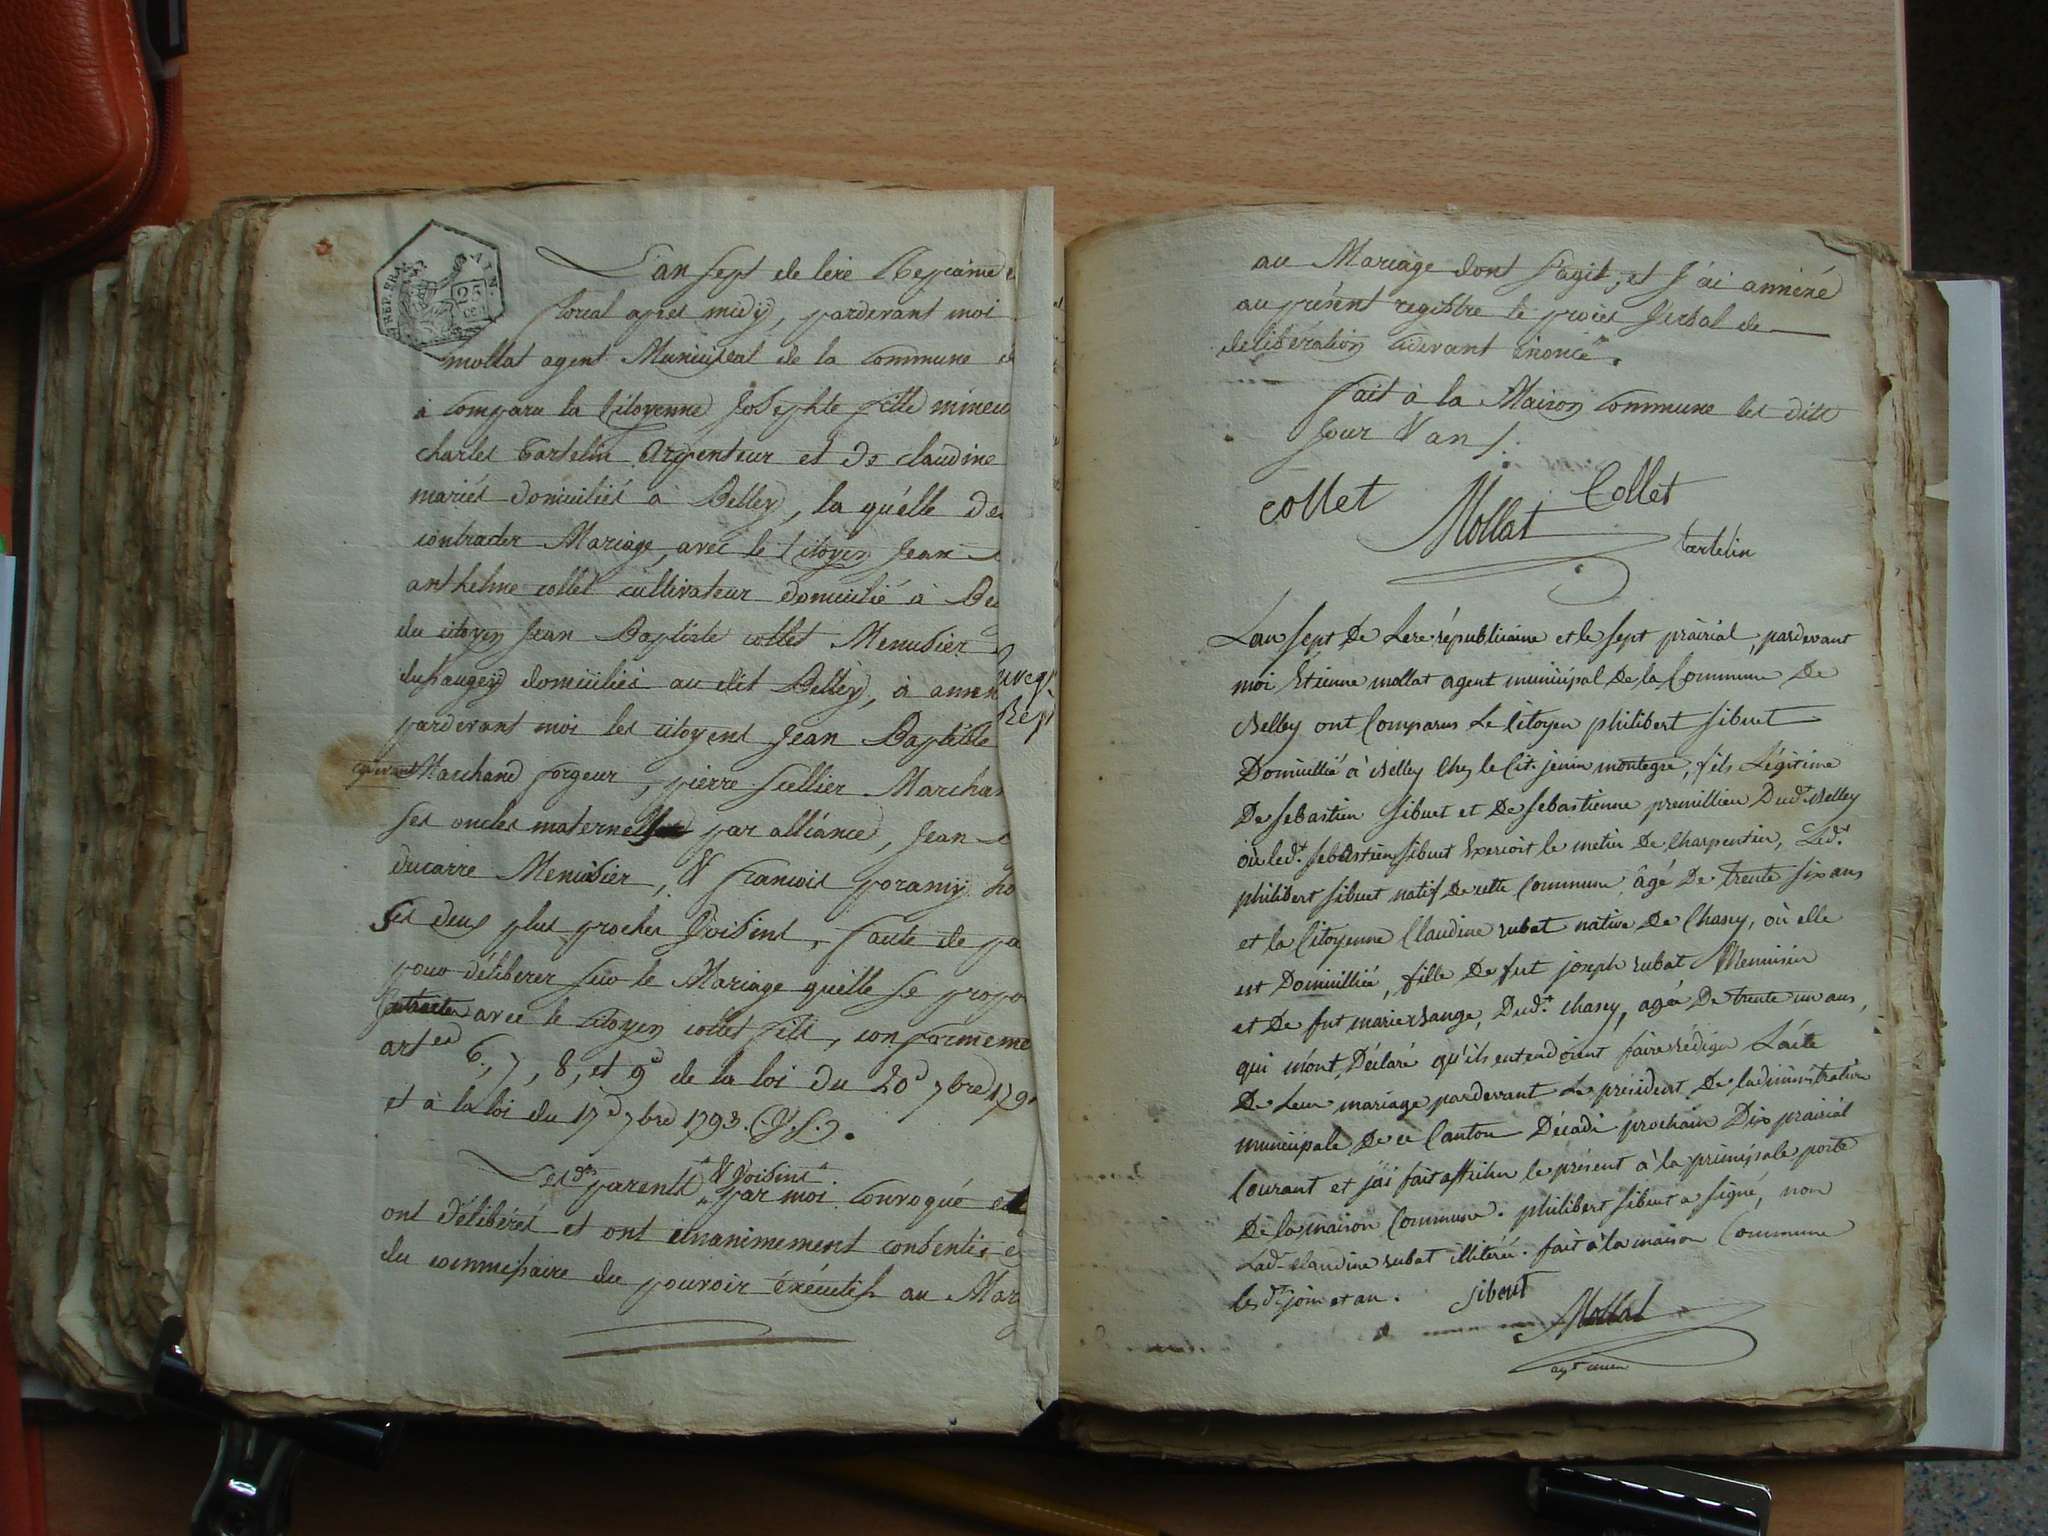 REP. FRA. AIN.
25
L'an sept de lere Repcaine
floreal apres midÿ, pardevant moi
mollat agent Municipal de la Commune
à Comparu la Citoyenne Josephte fille mineu
charles tartelin Argenteur et de claudine
mariés domiciliés à Belleÿ, la qu'elle de
contracter Mariage, avec le Citoyen Jean
anthelme collet cultivateur domicilié à Be
du citoyen Jean Baptiste collet Menusier
domiciliés au dit Belleÿ, à amen
pardevant moi les citoyens Jean Baptiste
Marchand forgeur, pierre Scellier Marchan
ses oncles maternels par alliance, Jean
ducarre Menuisier, & francois poramÿ
ses deux plus proches Voisins, faute de pa
pour délibérer sur le Mariage qu'elle se propo
Contracter avec le Citoyen collet fils, conformeme
art 6, 7, 8, et 9 de la loi du 20 7bre 179
et à la loi du 17 7bre 1793. (V.S.).
& Voisins
Lesds parents par moi Convoqué et
ont délibérés et ont unanimement consentis
du commissaire du pouvoir éxécutif au Mar
au Mariage dont s'agit, et J'ai annéxé
au présent registre le procès Verbal de
délibération cidevant énoncé.
fait à la Maison Commune les dits
Jour & an /.
collet Mollat Collet
tartelin
L'an sept De Lere républicaine et le sept prairial, pardevant
moi Etienne mollat agent municipal De la Commune De
Belley ont Comparus Le Citoyen philibert sibuet
Domicillié à Belley Chez le Cit. jenin montegre, fils Légitime
De sebastien sibuet et De sebastienne premillieu Dudt Belley
où ledt sebastien sibuet Exercoit le metier De Charpentier, Ledt
philibert sibuet natif De cette Commune âgé De trente six ans
et la Citoyenne Claudine rubat native De Chasey, où elle
est Domicilliée, fille De fut joseph rubat Menuisier
et De fut marie Dudt chasey, agée De trente un ans,
qui m'ont Déclaré qu'ils entendoient faire rédiger L'acte
De Leur mariage pardevant Le président De Ladministration
municipale De ce Canton Décadi prochain Dix prairial
Courant et j'ai fait afficher le présent à la principale porte
De la maison Commune. philibert sibuet a signé, non
Lade claudine rubat illitérée. fait à la maison Commune
les dt jour et an. sibuet
Mollat
agt mun